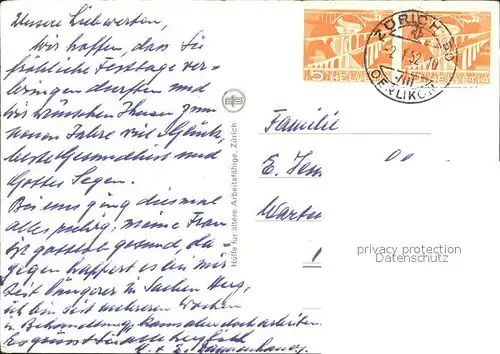 Unsere Lieben werten,
Wir hoffen, dass Sie
fröhliche Festtage ver-
bringen durften und
wir wünschen Ihnen zum
neuen Jahre viel Glück,
beste Gesundheit und
Gottes Segen.
Bei uns ging diesmal
alles ruhig, meine Frau
ist gottlob gesund, da-
gegen happert es bei mir
seit längerer in Sachen Herz,
ich bin seit mehreren Wochen
in Behandlung, kann aber doch arbeiten.
Es grüsst Sie alle herzlich
Hülfe für ältere Arbeitsfähige, Zürich
5 HELVETIA
HELVETIA
ZÜRICH 50
52
OERLIKON
Familie
E.
privacy protection
Datenschutz